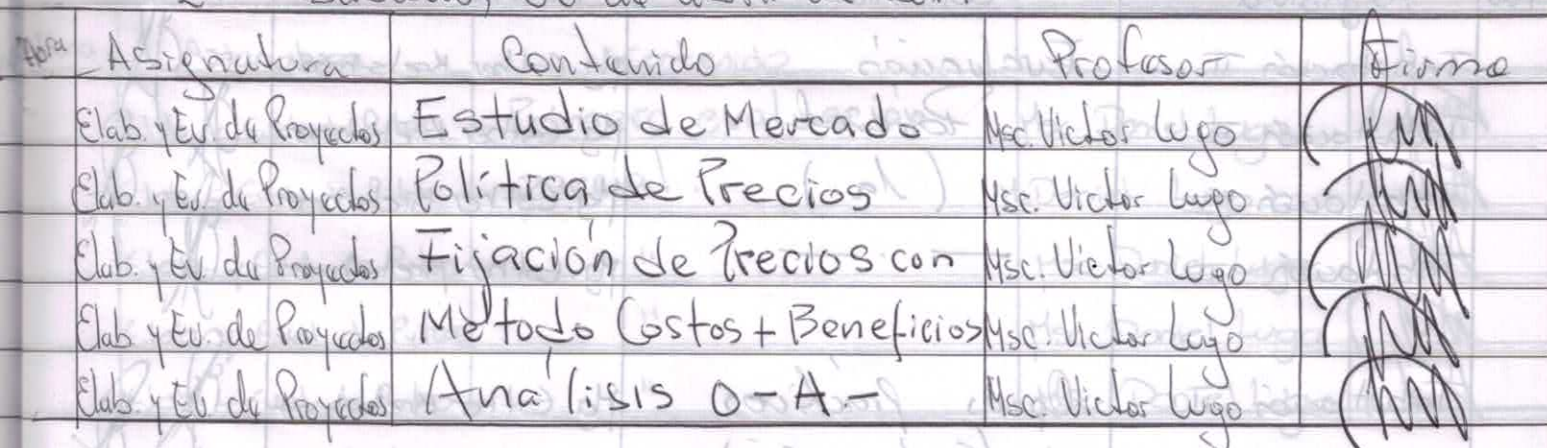 Hora Asignatura Contenido Profesor Firma
Elab. y Ev. de Proyectos Estudio de Mercado Msc. Victor Lugo
Elab. y Ev. de Proyectos Política de Precios Msc. Victor Lugo
Elab. y Ev. de Proyectos Fijación de Precios con Msc. Victor Lugo
Elab y Ev. de Proyectos Método Costos + Beneficios Msc. Victor Lugo
Elab. y Ev. de Proyectos Análisis O-A- Msc. Victor Lugo